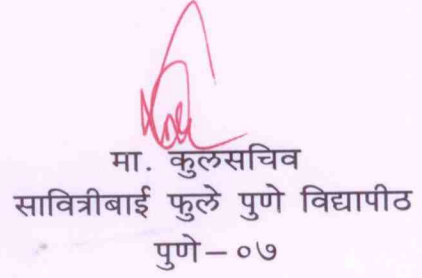 मा. कुलसचिव
सावित्रीबाई फुले पुणे विद्यापीठ
पुणे – ०७